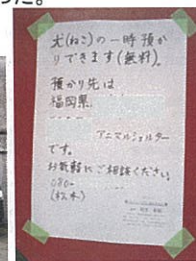 った。
犬(ねこ)の一時預か
りできます(無料)。
預かり先は
福岡県
アニマルシェルター
です。
お気軽にご相談ください。
080-
(松本)